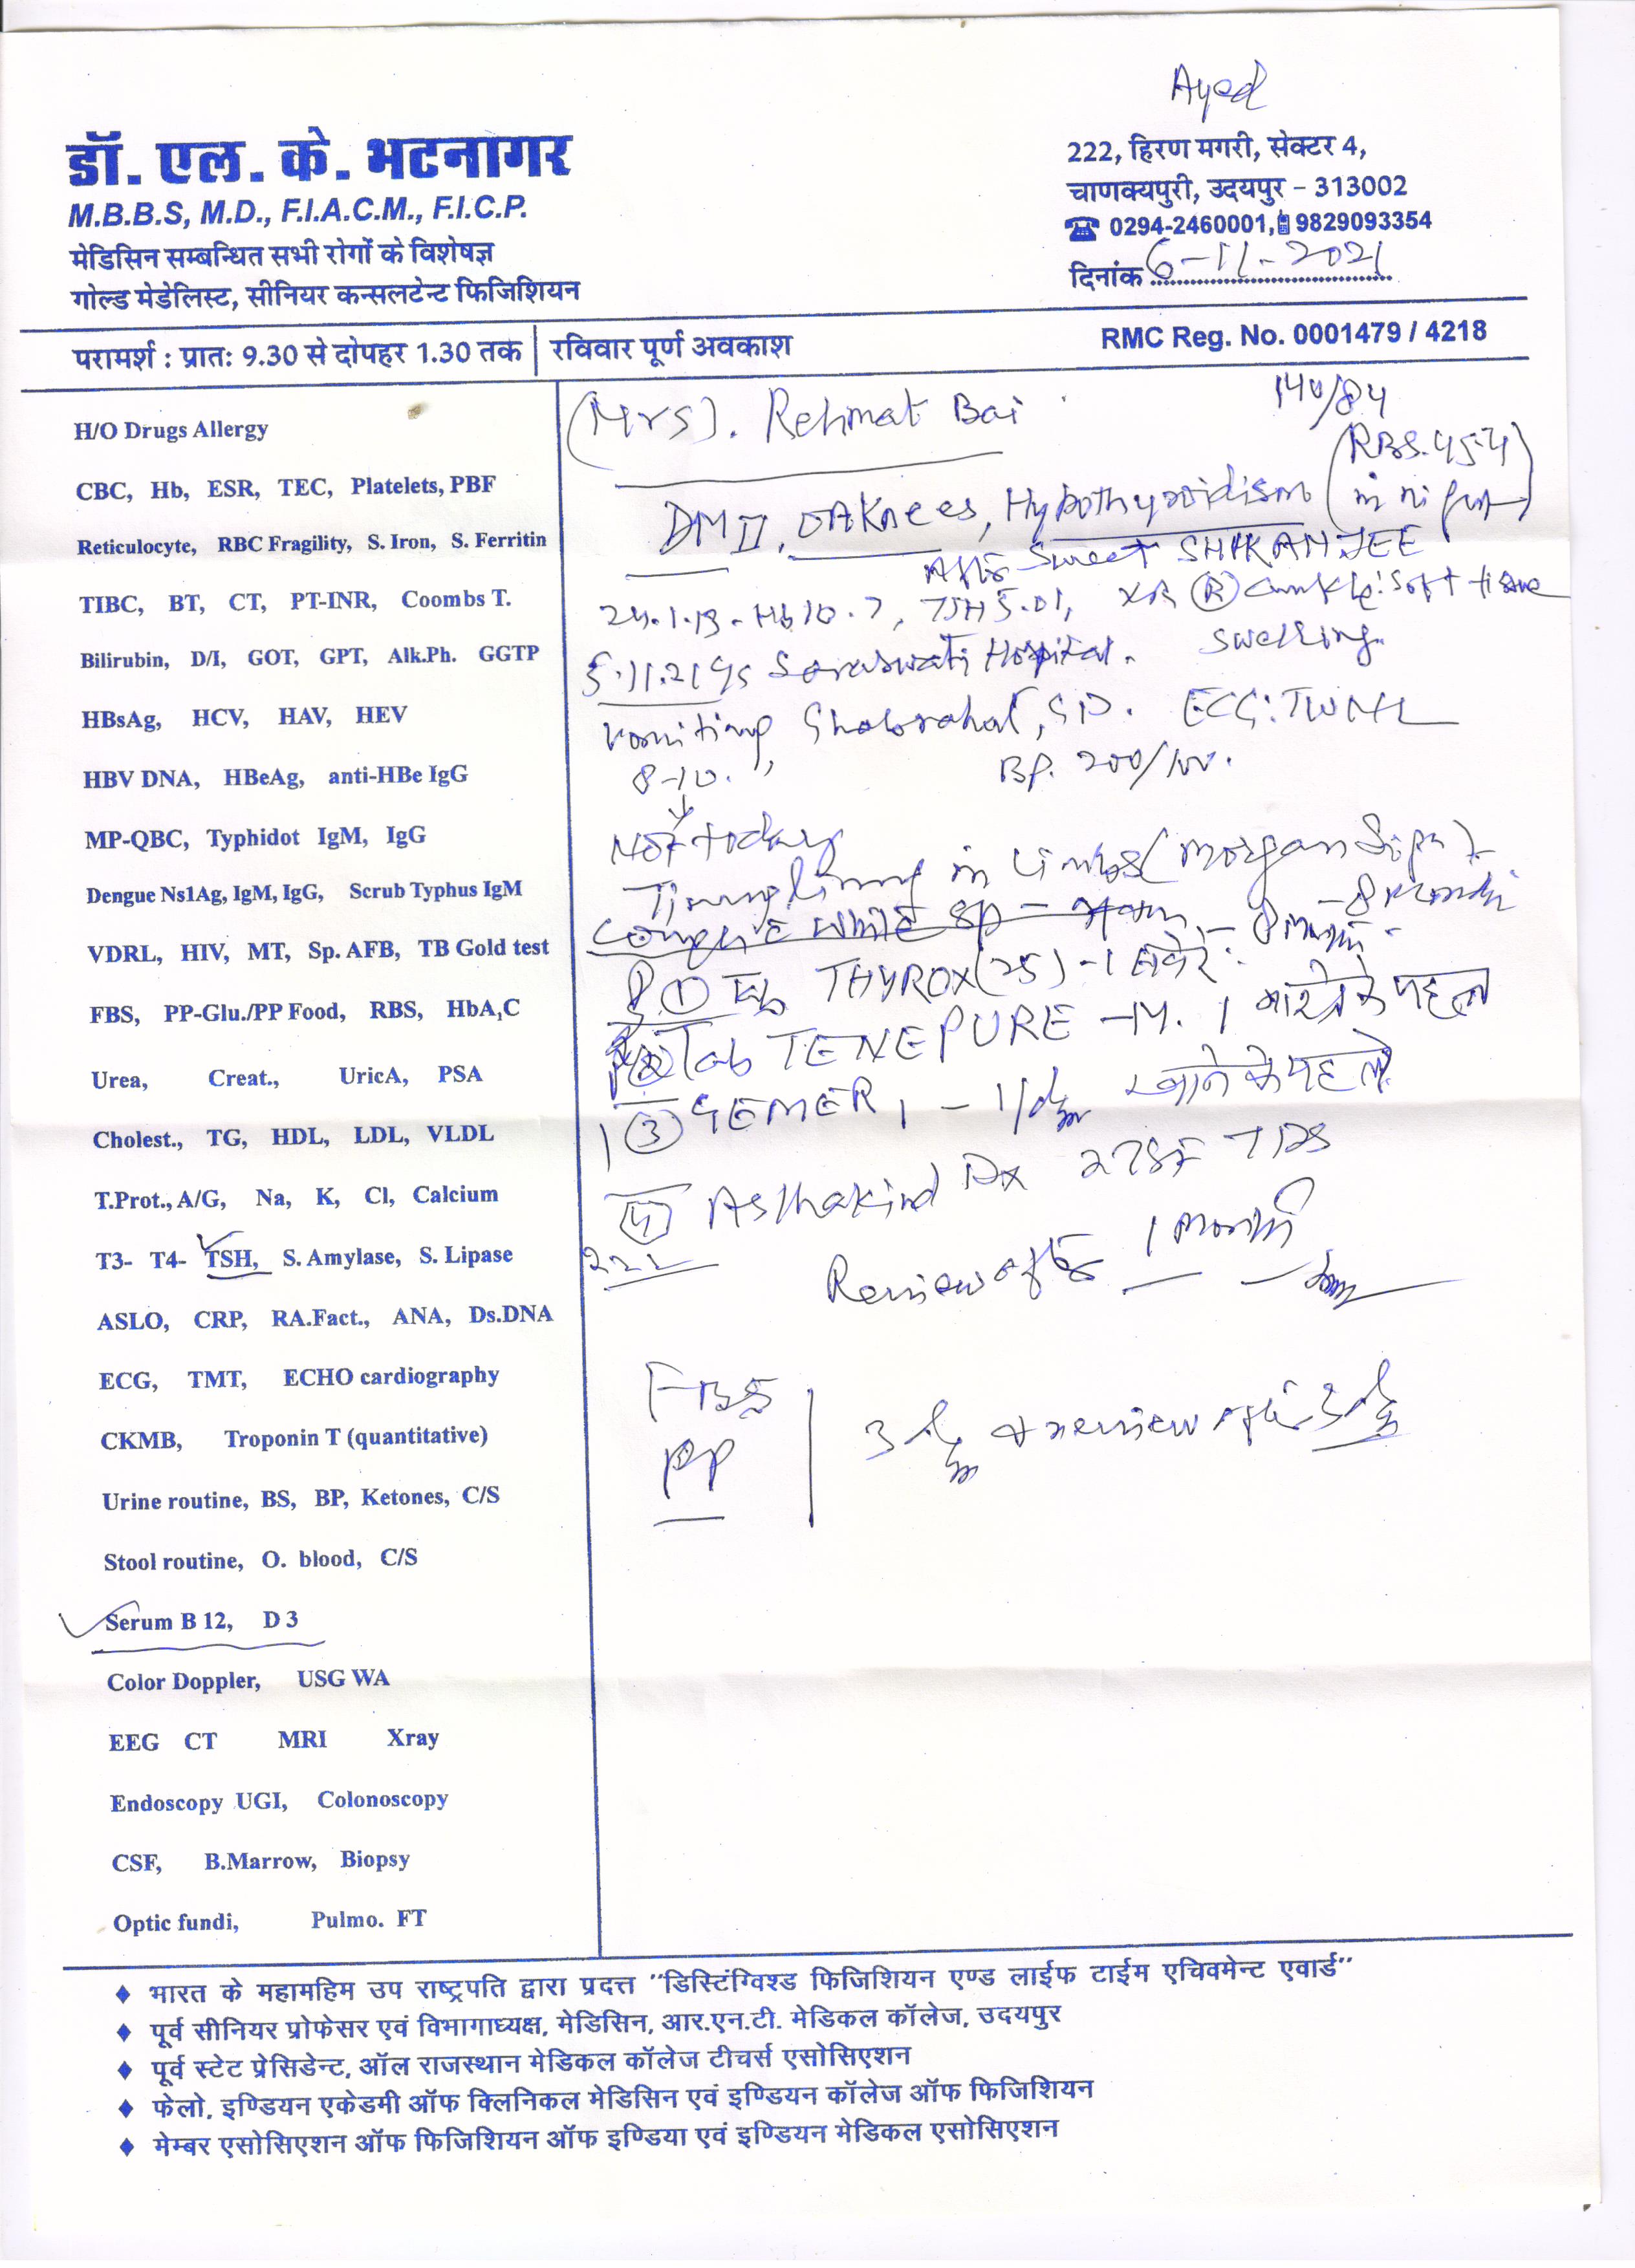 Ayad
डॉ. एल. के. भटनागर
M.B.B.S, M.D., F.I.A.C.M., F.I.C.P.
मेडिसिन सम्बन्धित सभी रोगों के विशेषज्ञ
गोल्ड मेडेलिस्ट, सीनियर कन्सलटेन्ट फिजिशियन
222, हिरण मगरी, सेक्टर 4,
चाणक्यपुरी, उदयपुर - 313002
0294-2460001, 9829093354
दिनांक 6-11-2021
परामर्श : प्रातः 9.30 से दोपहर 1.30 तक | रविवार पूर्ण अवकाश
RMC Reg. No. 0001479 / 4218
H/O Drugs Allergy
CBC, Hb, ESR, TEC, Platelets, PBF
Reticulocyte, RBC Fragility, S. Iron, S. Ferritin
TIBC, BT, CT, PT-INR, Coombs T.
Bilirubin, D/I, GOT, GPT, Alk.Ph. GGTP
HBsAg, HCV, HAV, HEV
HBV DNA, HBeAg, anti-HBe IgG
MP-QBC, Typhidot IgM, IgG
Dengue Ns1Ag, IgM, IgG, Scrub Typhus IgM
VDRL, HIV, MT, Sp. AFB, TB Gold test
FBS, PP-Glu./PP Food, RBS, HbA1C
Urea, Creat., UricA, PSA
Cholest., TG, HDL, LDL, VLDL
T.Prot., A/G, Na, K, Cl, Calcium
T3- T4- TSH, S. Amylase, S. Lipase
ASLO, CRP, RA.Fact., ANA, Ds.DNA
ECG, TMT, ECHO cardiography
CKMB, Troponin T (quantitative)
Urine routine, BS, BP, Ketones, C/S
Stool routine, O. blood, C/S
Serum B 12, D 3
Color Doppler, USG WA
EEG CT MRI Xray
Endoscopy UGI, Colonoscopy
CSF, B.Marrow, Biopsy
Optic fundi, Pulmo. FT
(Mrs). Rehmat Bai
140/84
(RBS. 454
DM II, OA Knees, Hypothyroidism
After Sweet SHIKANJEE
Hb 10.7, TSH 5.01, XR (R) ankle: soft tissue
swelling.
5.11.21 Saraswati Hospital.
vomiting, Ghabrahat, ECG:
8-10. BP. 200/100.
Not today
in Limbs (Morgan Sign)
while
① THYROX (25) - 1 सवेरे
② Tab TENEPURE - M. 1 के पहले
③ GEMER 1 - 1/ खाने के पहले
④ Asthakind Dx 2TSF TDS
222
Review after 1 month
FBS
PP
3 review after 3
भारत के महामहिम उप राष्ट्रपति द्वारा प्रदत्त "डिस्टिंग्विश्ड फिजिशियन एण्ड लाईफ टाईम एचिवमेन्ट एवार्ड"
पूर्व सीनियर प्रोफेसर एवं विभागाध्यक्ष, मेडिसिन, आर.एन.टी. मेडिकल कॉलेज, उदयपुर
पूर्व स्टेट प्रेसिडेन्ट, ऑल राजस्थान मेडिकल कॉलेज टीचर्स एसोसिएशन
फेलो, इण्डियन एकेडमी ऑफ क्लिनिकल मेडिसिन एवं इण्डियन कॉलेज ऑफ फिजिशियन
मेम्बर एसोसिएशन ऑफ फिजिशियन ऑफ इण्डिया एवं इण्डियन मेडिकल एसोसिएशन